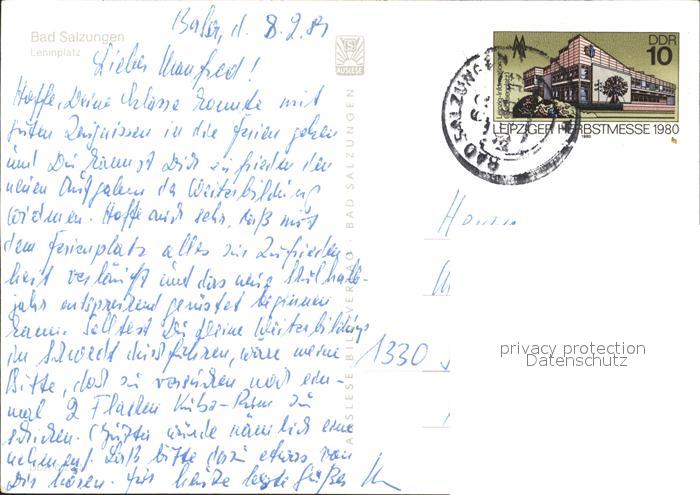 Bad Salzungen
Leninplatz
8.2.81
Lieber Manfred!
Hoffe, Deine Klasse konnte mit
guten Zeugnissen in die Ferien gehen
und Du kannst Dich zufrieden den
neuen Aufgaben der Weiterbildung
widmen. Hoffe auch sehr, daß mit
dem Ferienplatz alles zur Zufrieden-
heit verläuft und das neue Schulhalb-
jahr entsprechend gerüstet beginnen
kann. Solltest Du Deine Weiterbildung
in durchführen, wäre meine
Bitte, doch zu versuchen noch ein-
mal 2 Flaschen Kuba-Rum zu
schicken. (Jutta würde nämlich eine
nehmen). Laß bitte dazu etwas von
Dir hören. Für heute beste Grüße
AUSLESE
AUSLESE BILDER VERLAG · BAD SALZUNGEN
DDR
10
LEIPZIGER HERBSTMESSE 1980
BAD SALZUNGEN
Herrn
1330
privacy protection
Datenschutz